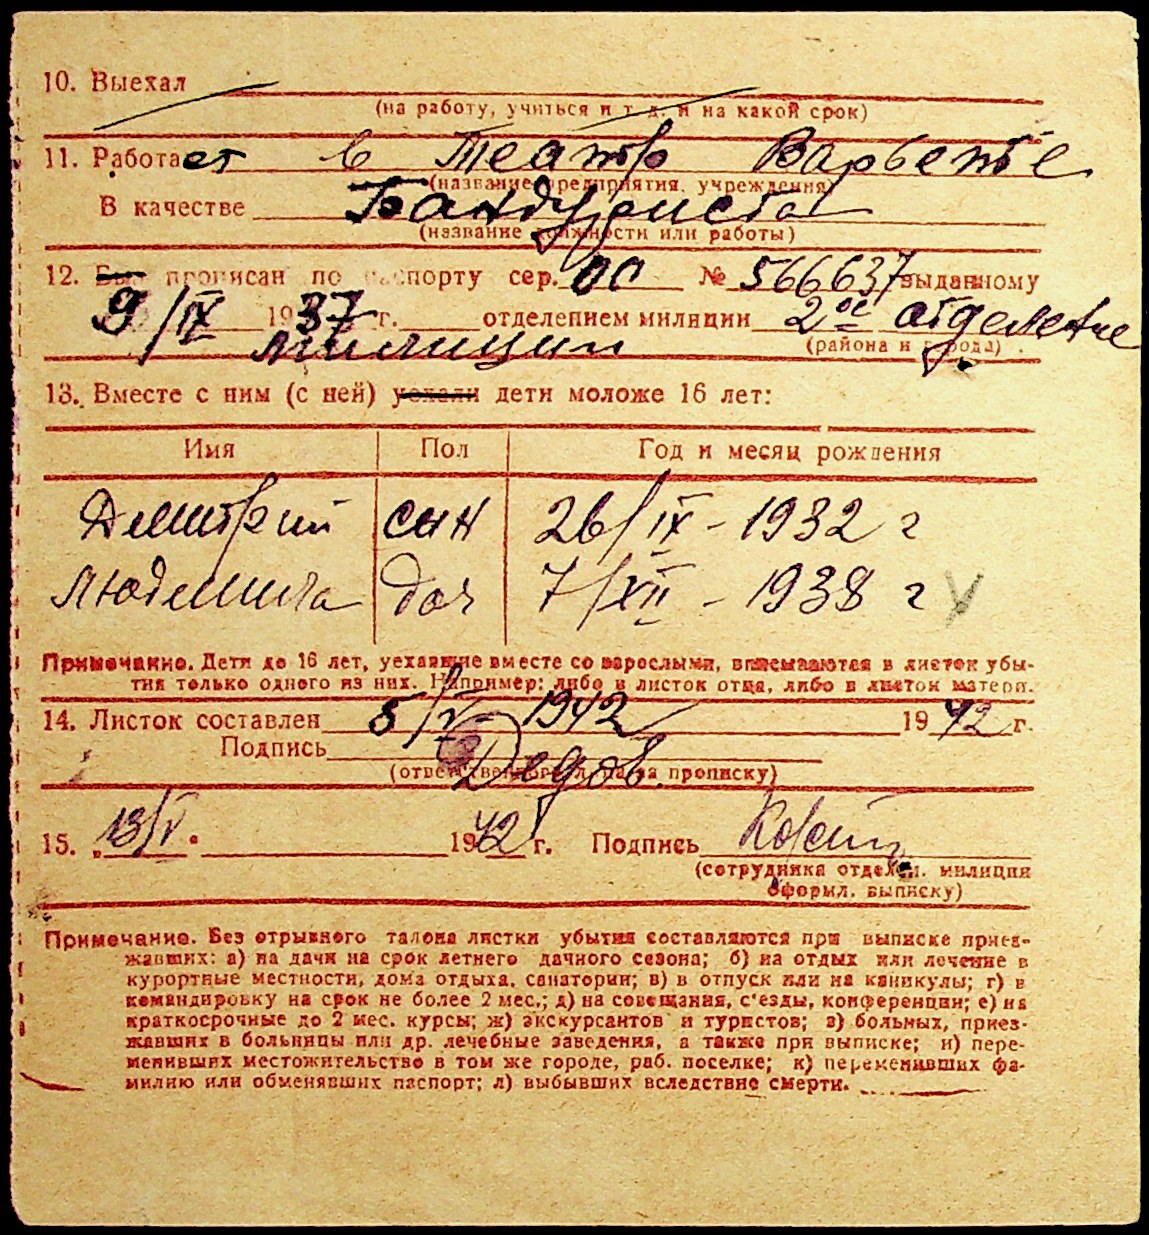 10. Выехал
(на работу, учиться и т. д. и на какой срок)
11. Работает в Театр Варьете
(название предприятия, учреждения)
В качестве Бандуриста
(название должности или работы)
12. Был прописан по паспорту сер. ОО № 566637 выданному
9/IX 1937 г. отделением милиции 2ое отделение
милиции (района и города)
13. Вместе с ним (с ней) уехали дети моложе 16 лет:
Имя Пол Год и месяц рождения
Димитрий сын 26/IX - 1932 г
Людмила доч 7/XII - 1938 г V
Примечание. Дети до 16 лет, уехавшие вместе со взрослыми, вписываются в листок убы-
тия только одного из них. Например: либо в листок отца, либо в листок матери.
14. Листок составлен 5/V - 1942 1942 г.
Подпись Дедов.
(ответственного лица за прописку)
15. „13/V" 1942 г. Подпись
(сотрудника отделен. милиции
оформл. выписку)
Примечание. Без отрывного талона листки убытия составляются при выписке приез-
жавших: а) на дачи на срок летнего дачного сезона; б) на отдых или лечение в
курортные местности, дома отдыха, санатории; в) в отпуск или на каникулы; г) в
командировку на срок не более 2 мес.; д) на совещания, с'езды, конференции; е) на
краткосрочные до 2 мес. курсы; ж) экскурсантов и туристов; з) больных, приез-
жавших в больницы или др. лечебные заведения, а также при выписке; и) пере-
менивших местожительство в том же городе, раб. поселке; к) переменивших фа-
милию или обменявших паспорт; л) выбывших вследствие смерти.